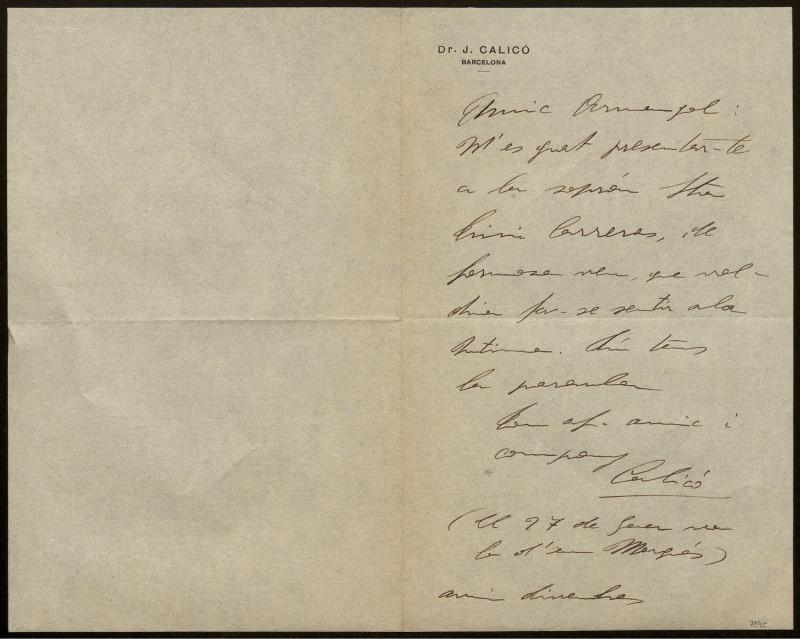 Dr. J. CALICÓ
BARCELONA
Amic Armengol:
M'es grat presentar-te
a la soprán Sta
Mimi Carreras, de
fermosa veu, que vol-
dria fer-se sentir a la
Intima. Tú tens
la paraula
Ton af. amic i
company
Calicó
(El 27 de Gener va
lo d'en Margiés)
avui divendres
7895